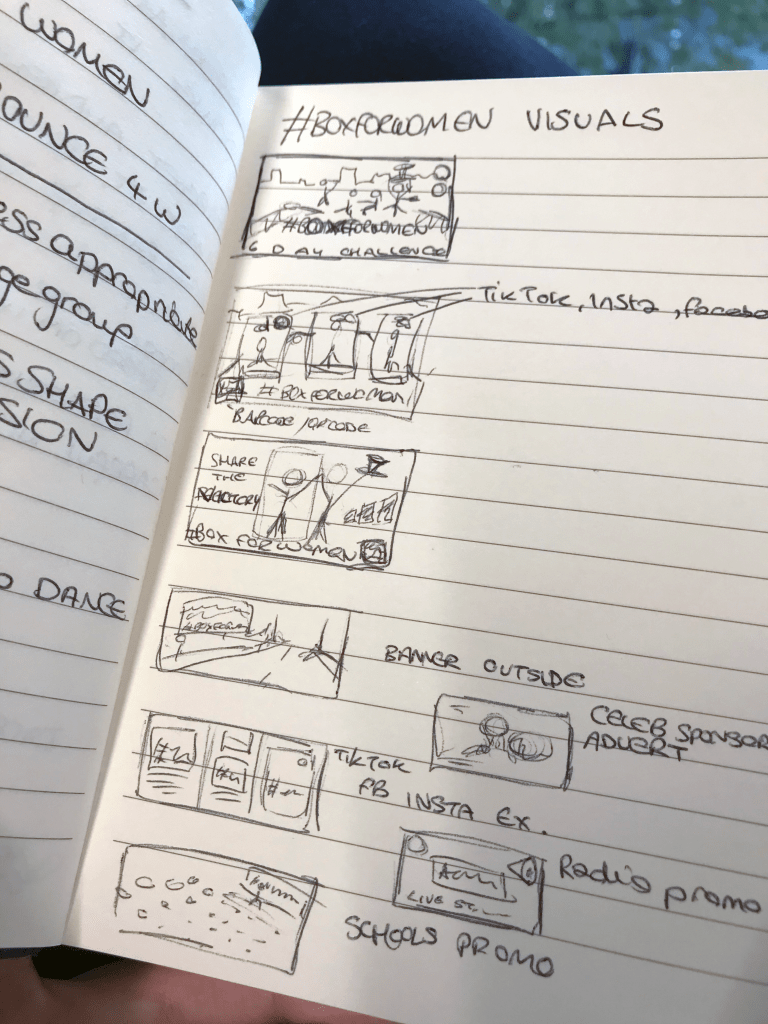 WOMEN
OUNCE 4 W
ess appropriate
ge group
S SHAPE
SION
O DANCE
#BOXFORWOMEN VISUALS
#BOXFORWOMEN
6 DAY CHALLENGE
TikTok, Insta, facebo
#BOXFORWOMAN
BARCODE/QRCODE
SHARE
THE
#BOX FOR WOMEN
BANNER OUTSIDE
CELEB SPONSOR
ADVERT
TikTok
FB INSTA EX.
Radio promo
LIVE
SCHOOLS PROMO